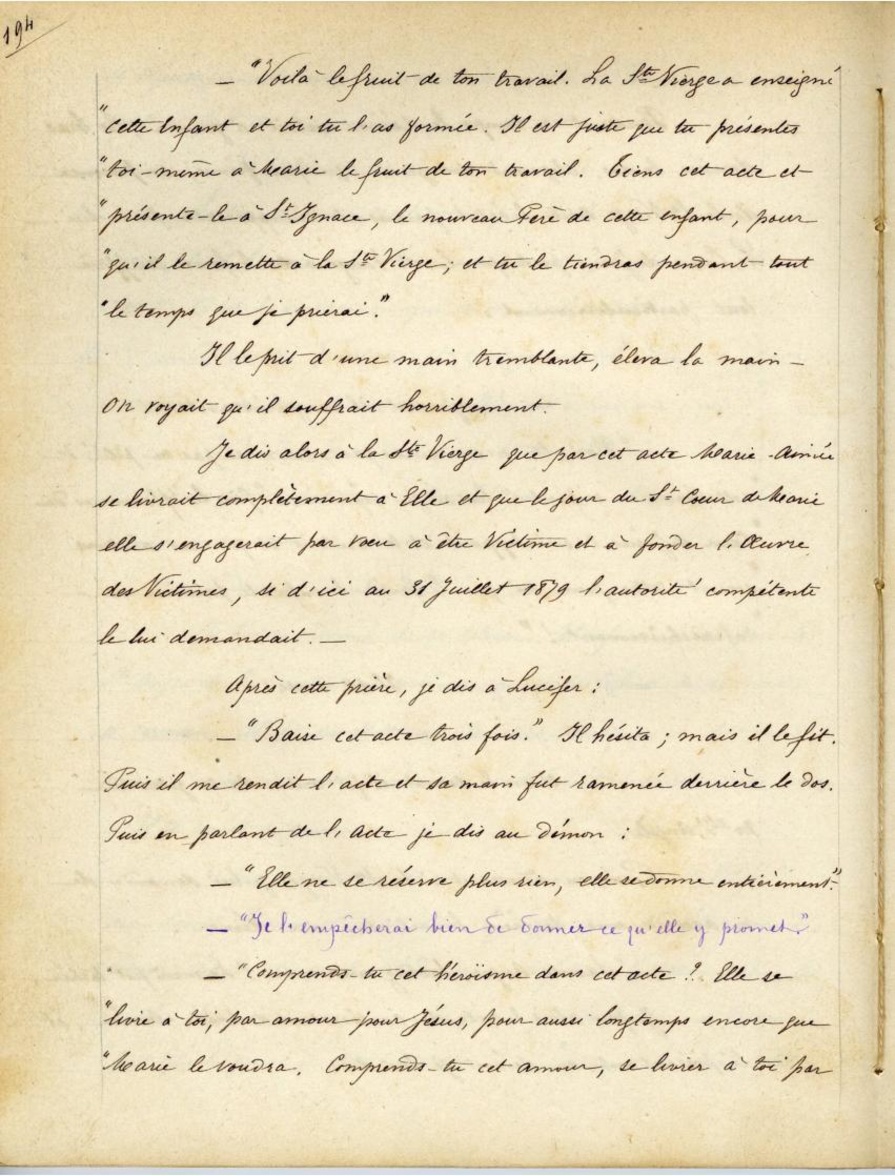 194
— "Voilà le fruit de ton travail. La Ste Vierge a enseigné
"cette Enfant et toi tu l'as formée. Il est juste que tu présentes
"toi-même à Marie le fruit de ton travail. Tiens cet acte et
"présente-le à St Ignace, le nouveau Père de cette enfant, pour
"qu'il le remette à la Ste Vierge ; et tu le tiendras pendant tout
"le temps que je prierai."
Il le prit d'une main tremblante, éleva la main —
On voyait qu'il souffrait horriblement.
Je dis alors à la Ste Vierge que par cet acte Marie-Aimée
se livrait complètement à Elle et que le jour du St Coeur de Marie
elle s'engagerait par voeu à être Victime et à fonder l'Œuvre
des Victimes, si d'ici au 31 Juillet 1879 l'autorité compétente
le lui demandait. —
Après cette prière, je dis à Lucifer :
— "Baise cet acte trois fois." Il hésita ; mais il le fit.
Puis il me rendit l'acte et sa main fut ramenée derrière le dos.
Puis en parlant de l'Acte je dis au démon :
— "Elle ne se réserve plus rien, elle se donne entièrement."
— "Je l'empêcherai bien de donner ce qu'elle y promet."
— "Comprends-tu cet héroïsme dans cet acte ? Elle se
"livre à toi, par amour pour Jésus, pour aussi longtemps encore que
"Marie le voudra. Comprends-tu cet amour, se livrer à toi par